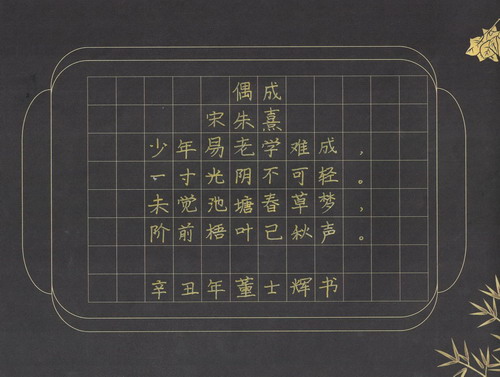 偶成
宋朱熹
少年易老学难成，
一寸光阴不可轻。
未觉池塘春草梦，
阶前梧叶已秋声。
辛丑年董士辉书